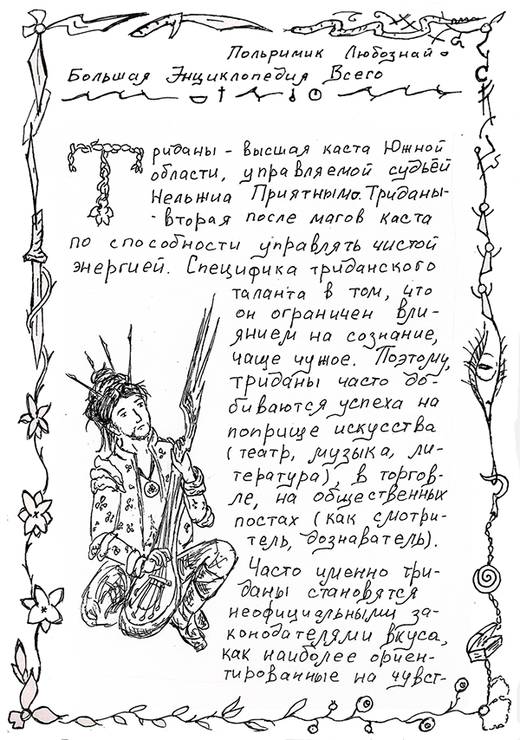 Польримик Любознай
Большая Энциклопедия Всего
Триданы - высшая каста Южной
области, управляемой судьёй
Нельжиа Приятнымо. Триданы-
- вторая после магов каста
по способности управлять чистой
энергией. Специфика триданского
таланта в том, что
он ограничен вли-
янием на сознание,
чаще чужое. Поэтому,
триданы часто до-
биваются успеха на
поприще искусства
(театр, музыка, ли-
тература), в торгов-
ле, на общественных
постах (как смотри-
тель, дознаватель).
Часто именно три-
даны становятся
неофициальными за-
конодателями вкуса,
как наиболее ориен-
тированные на чувст-